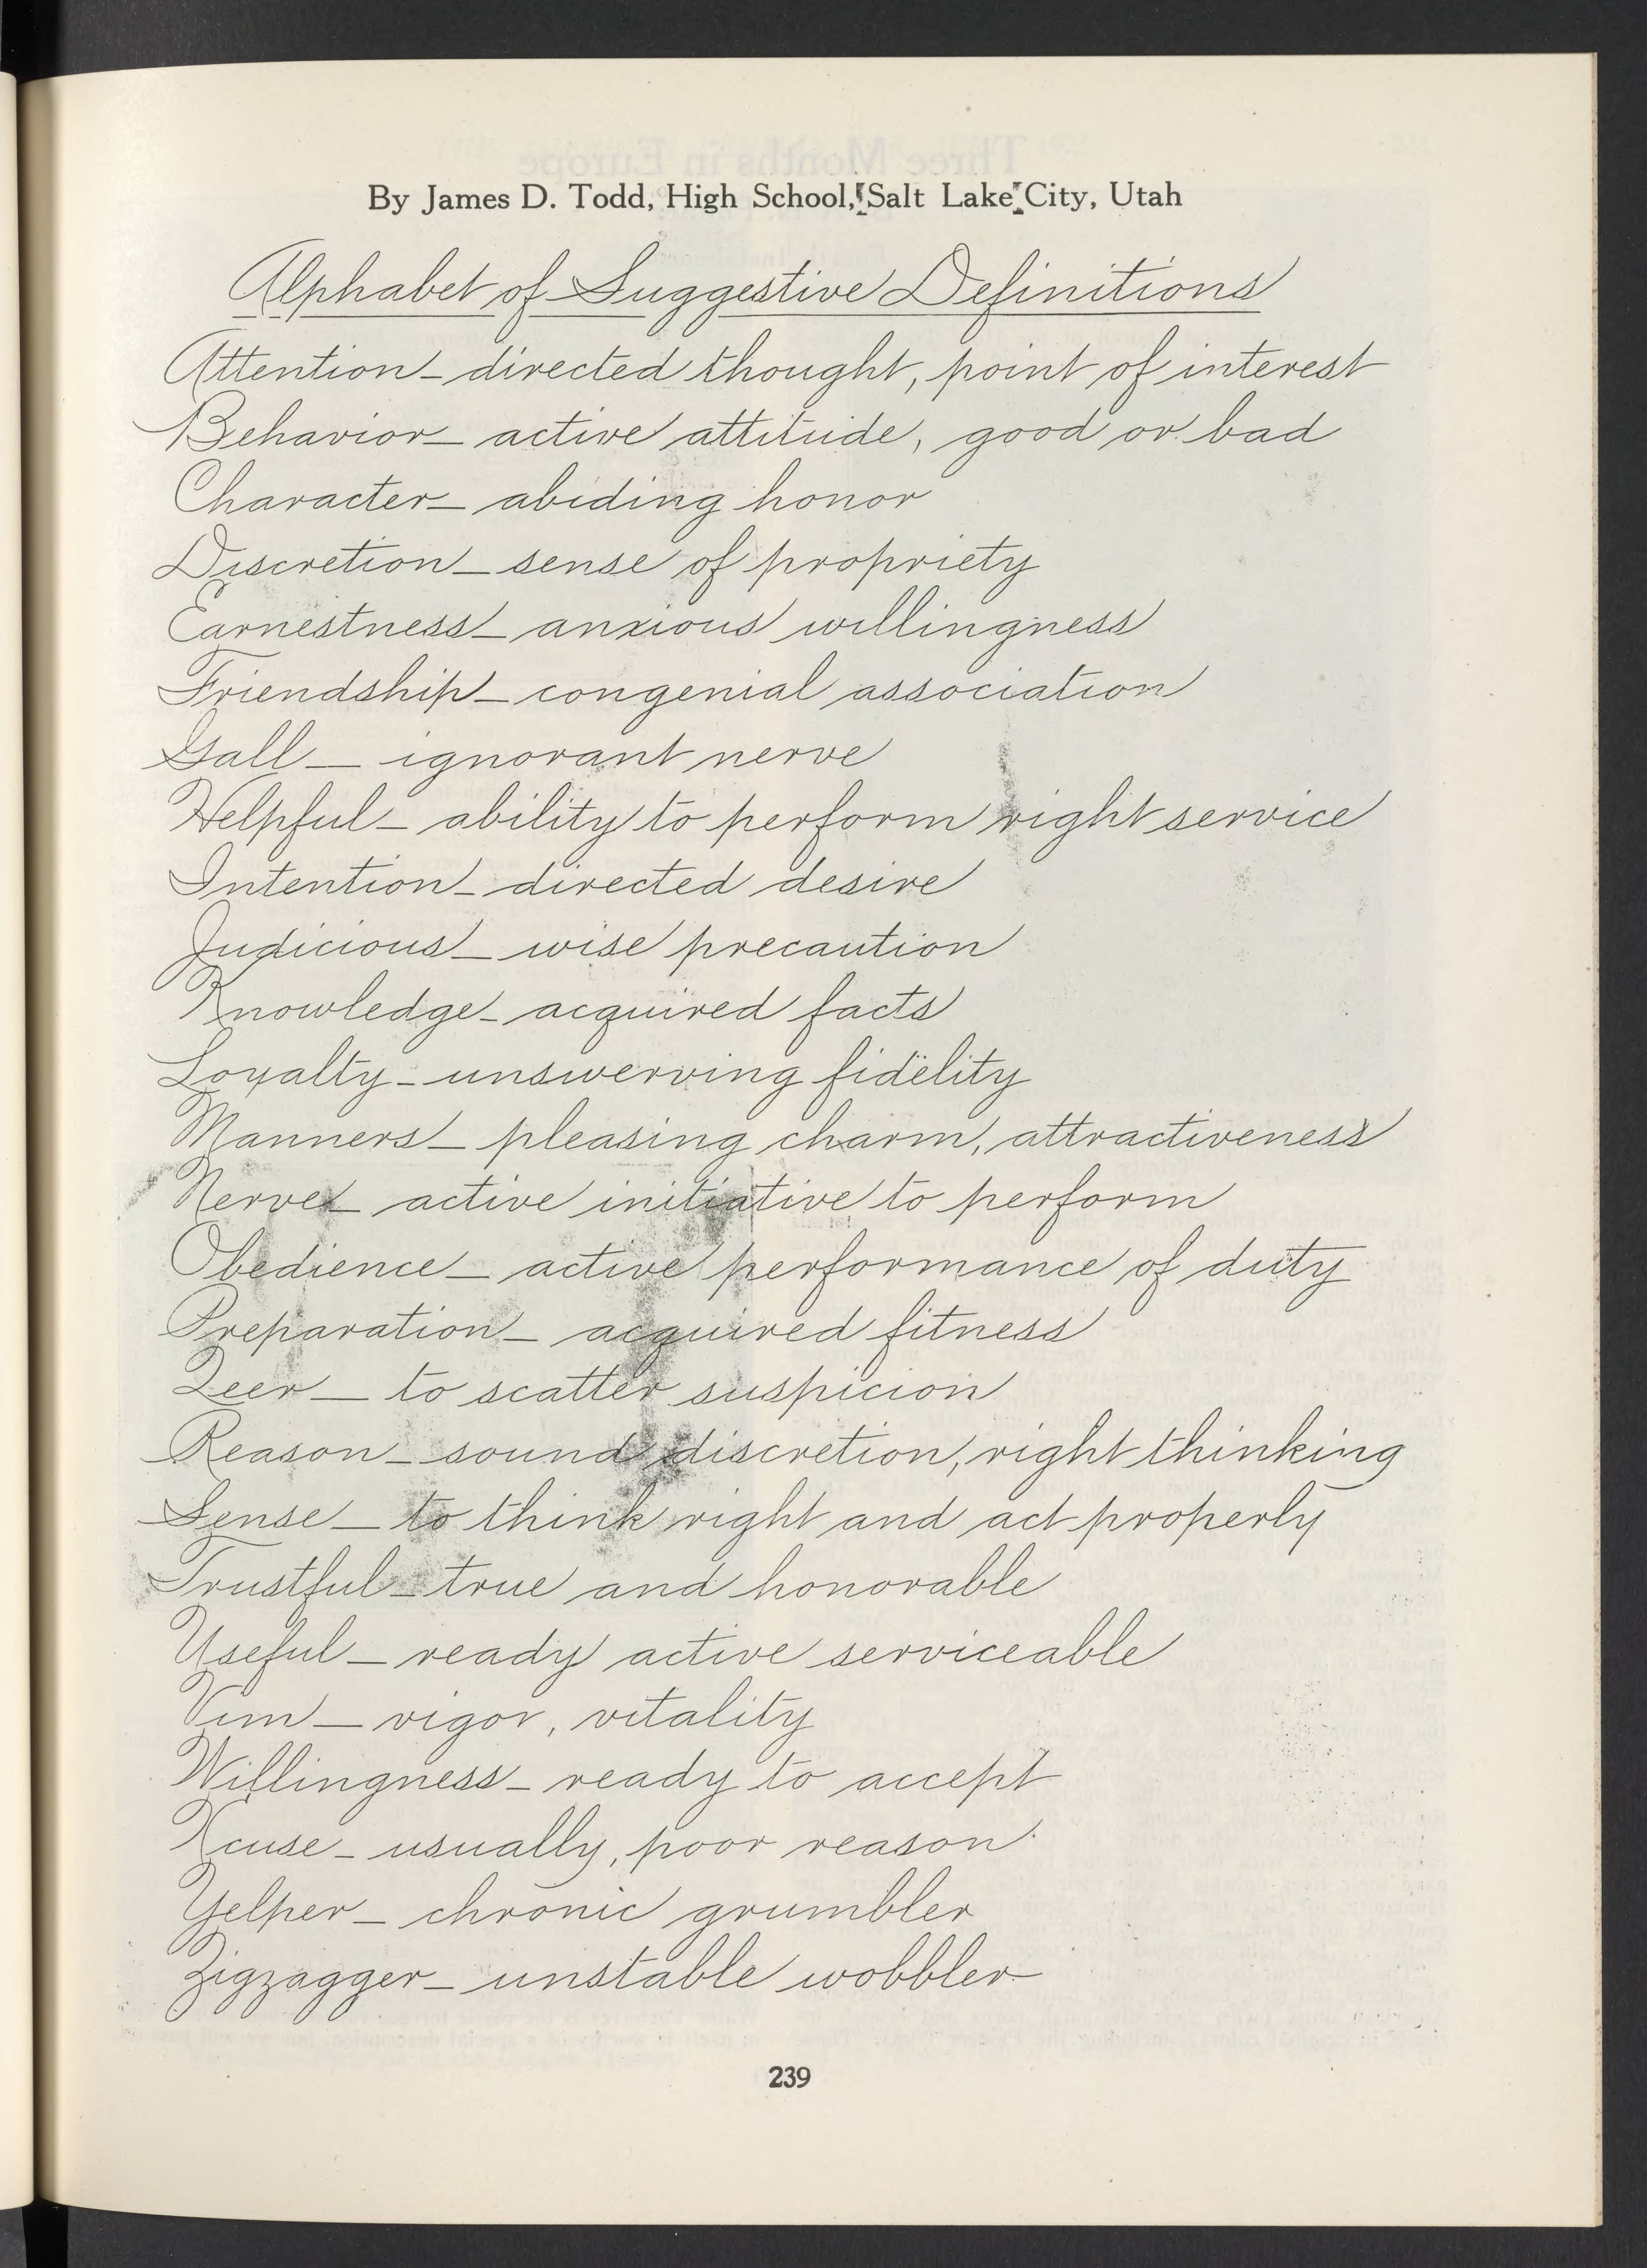 By James D. Todd, High School, Salt Lake City, Utah
Alphabet of Suggestive Definitions
Attention – directed thought, point of interest
Behavior – active attitude, good or bad
Character – abiding honor
Discretion – sense of propriety
Earnestness – anxious willingness
Friendship – congenial association
Gall – ignorant nerve
Helpful – ability to perform right service
Intention – directed desire
Judicious – wise precaution
Knowledge – acquired facts
Loyalty – unswerving fidelity
Manners – pleasing charm, attractiveness
Nerve – active initiative to perform
Obedience – active performance of duty
Preparation – acquired fitness
Qeer – to scatter suspicion
Reason – sound discretion, right thinking
Sense – to think right and act properly
Trustful – true and honorable
Useful – ready active serviceable
Vim – vigor, vitality
Willingness – ready to accept
Xcuse – usually, poor reason.
Yelper – chronic grumbler
Zigzagger – unstable wobbler
239